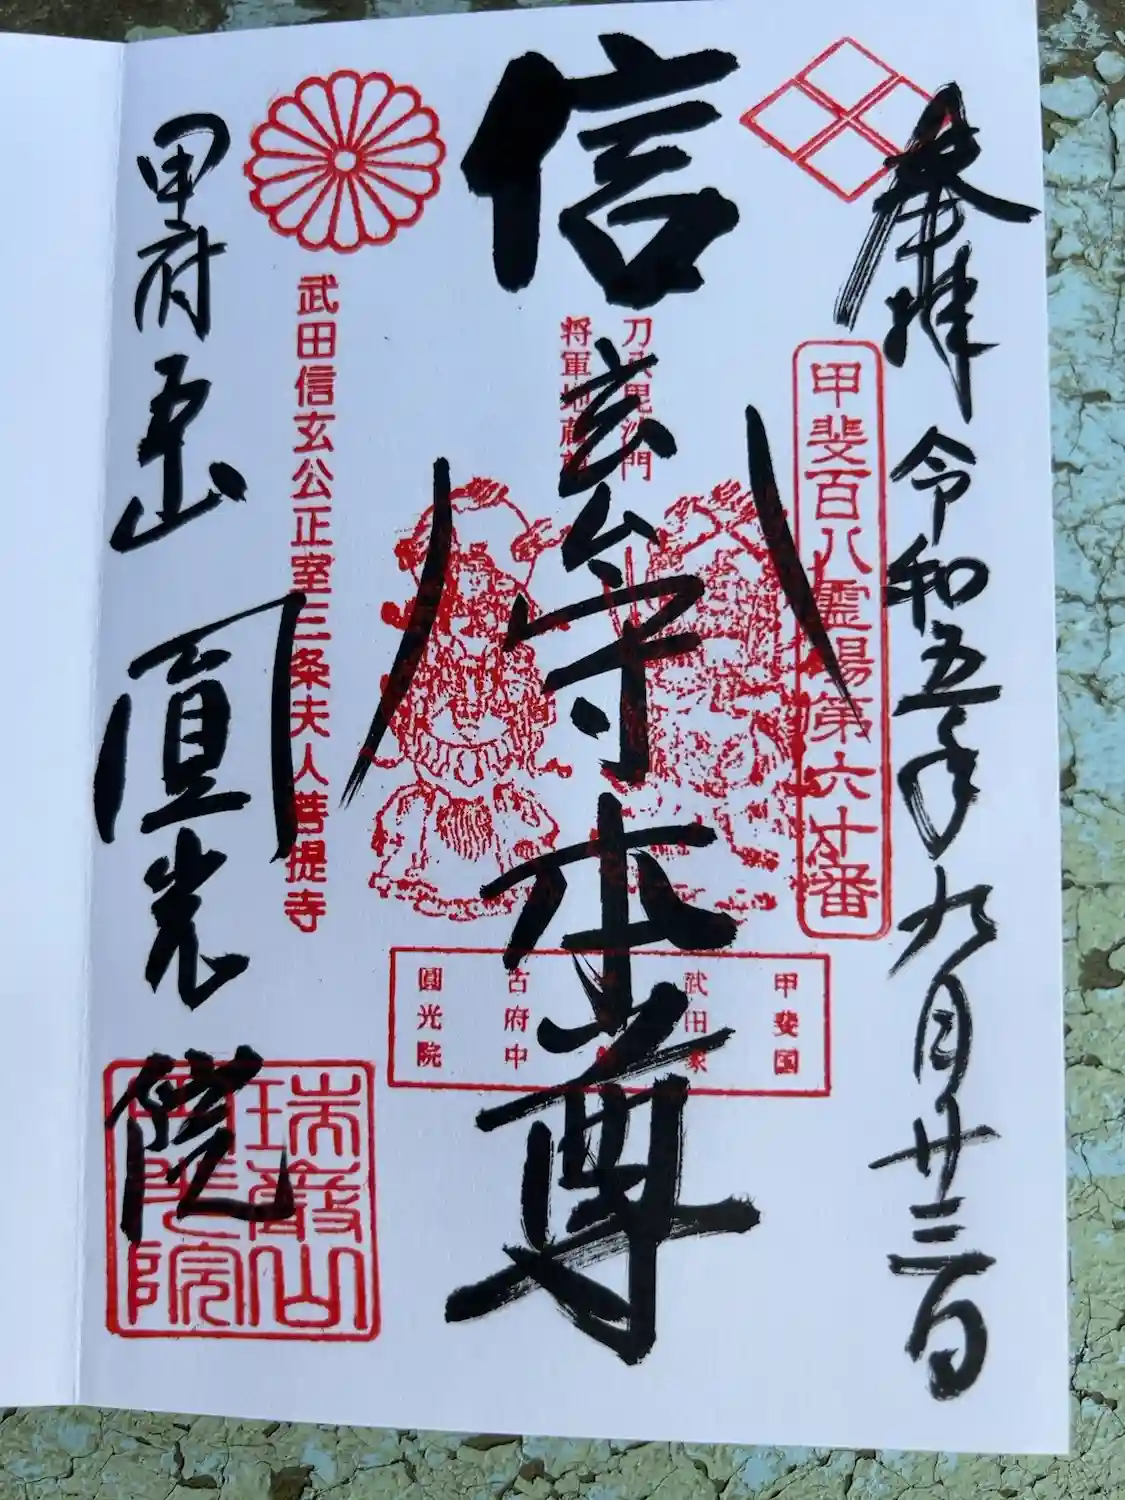 奉拝 令和五年九月廿三日
甲斐百八霊場第六十番
刀八毘沙門
将軍地蔵尊
信玄公守本尊
甲斐国
武田家
古府中
圓光院
武田信玄公正室三条夫人菩提寺
甲府 五山 圓光院
瑞巌山
圓光院